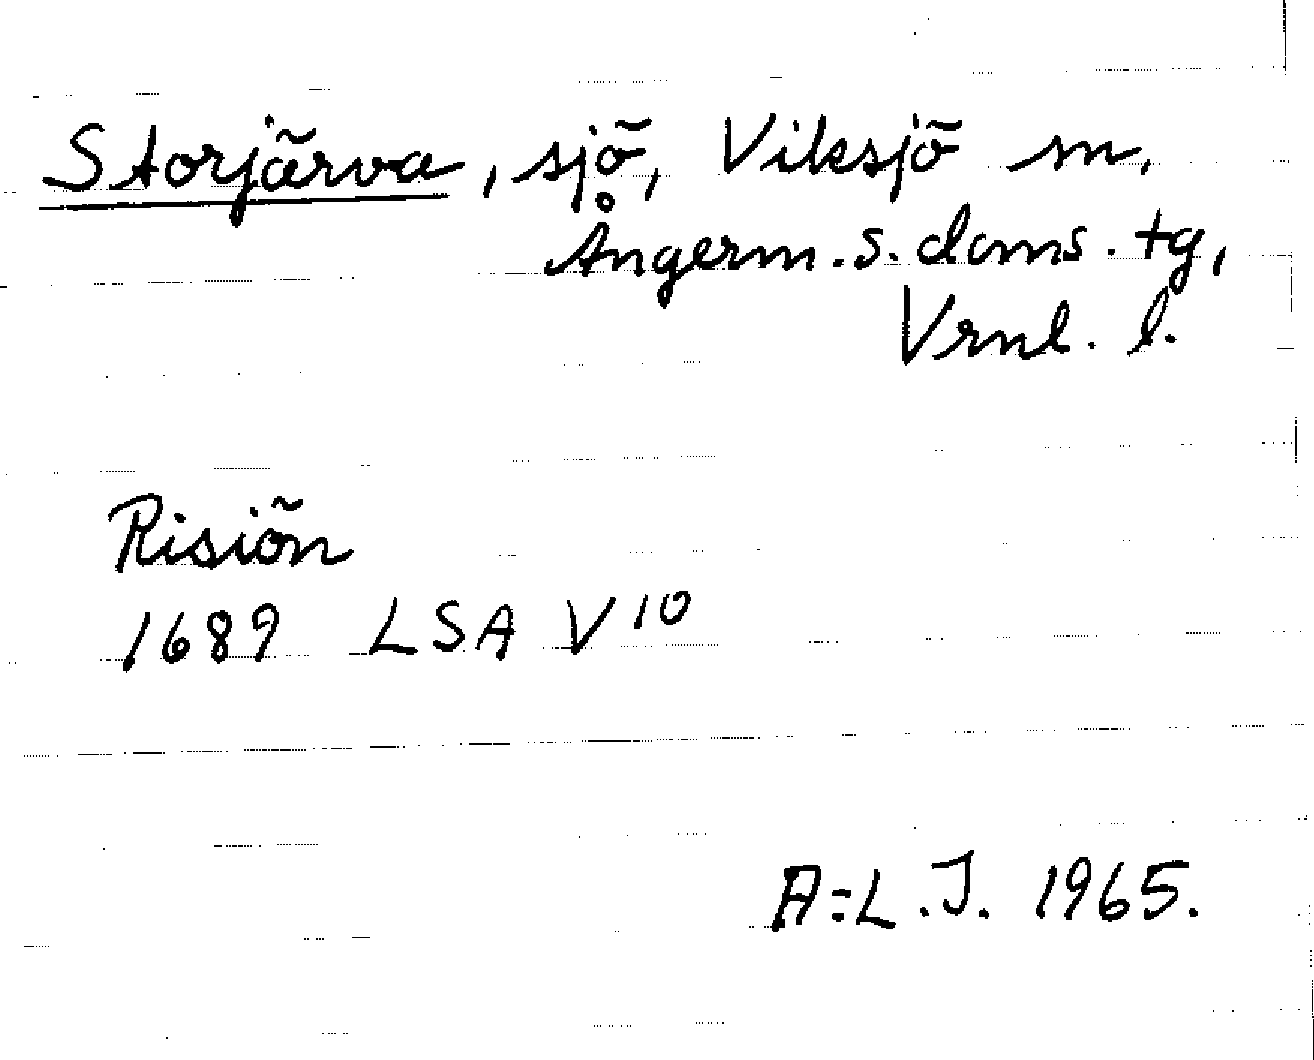 Storjärva, sjö, Viksjö sn,
Ångerm. s. doms. tg,
Vrnl. l.
Risiön
1689 LSA V 10
A-L.J. 1965.